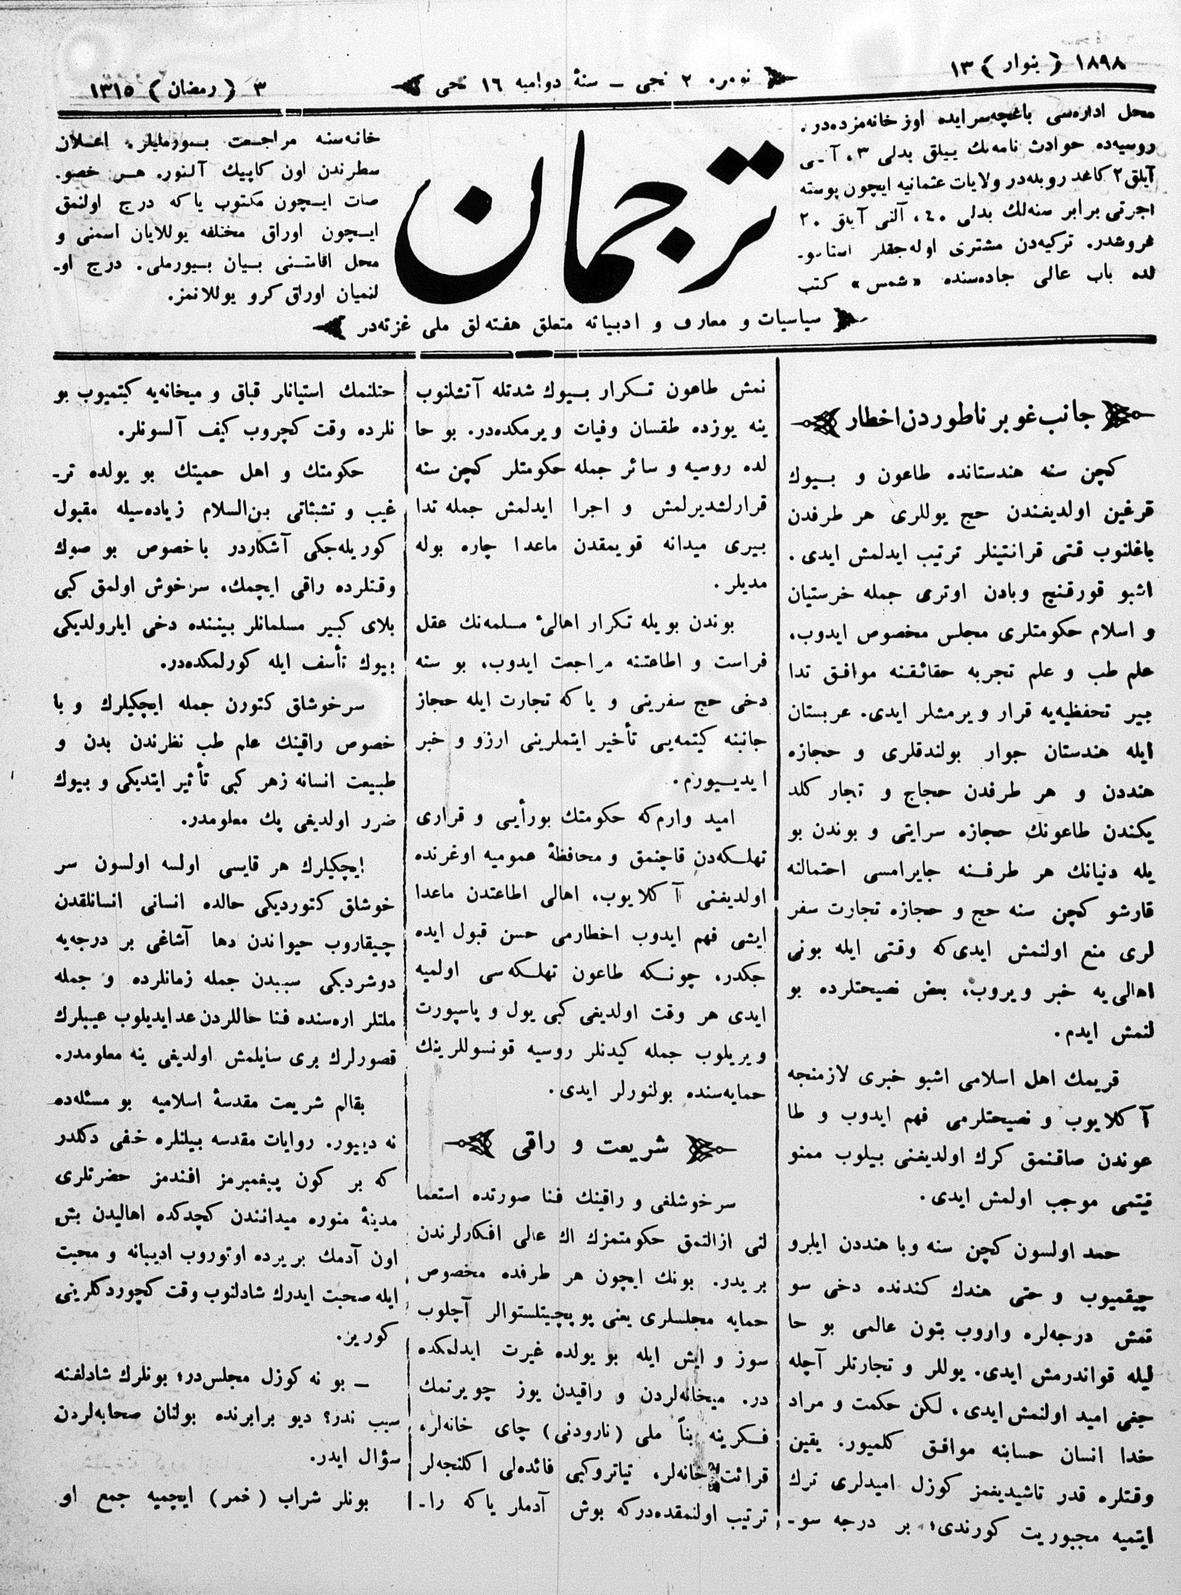 ١٨٩٨ ( ينوار ) ١٣
نومره ٢ نجی ــ سنهٔ دواميه ١٦ نجی
٣ ( رمضان ) ١٣١٥
محل اداره‌سی باغچه‌سرایده اوز خانه‌مزده‌در.
روسیه‌ده حوادث نامه‌نك ییللق بدلی ٣، آلتی
آیلق ٢ كاغد روبله‌در ولایات عثمانیه ایچون پوسته
اجرتی برابر سنه‌لك بدلی ٤٠، آلتی آیلق ٢٠
غروشدر. تركیه‌دن مشتری اوله‌جقلر استانبو-
لده باب عالی جاده‌سنده «شمس» كتب
ترجمان
خانه‌سنه مراجعت بیورملیلر. اعلان
سطرندن اون كاپیك آلنور. هر خصو-
صات ایچون مكتوب یا كه درج اولنمق
ایچون اوراق مختلفه یوللایان اسمنی و
محل اقامتنی بیان بیورملی. درج او-
لنمیان اوراق كرو یوللانمز.
سیاسیات و معارف و ادبیاته متعلق هفته‌لق ملی غزته‌در
جانب غوبرناطوردن اخطار
كچن سنه هندستانده طاعون و بیوك
قرغین اولدیغندن حج یوللری هر طرفدن
باغلنوب قتی قرانتینلر ترتیب ایدلمش ایدی.
اشبو قورقنچ وبادن اوتری جمله خرستیان
و اسلام حكومتلری مجلس مخصوص ایدوب،
علم طب و علم تجربه حقائقنه موافق تدا
بیر تحفظیه‌یه قرار ویرمشلر ایدی. عربستان
ایله هندستان جوار بولندقلری و حجازه
هنددن و هر طرفدن حجاج و تجار كلد
یكندن طاعونك حجازه سرایتی و بوندن بو
یله دنیانك هر طرفنه جایرامسی احتمالنه
قارشو كچن سنه حج و حجازه تجارت سفر
لری منع اولنمش ایدی كه وقتی ایله بونی
اهالی‌یه خبر ویروب، بعض نصیحتلرده بو
لنمش ایدم.
قریمك اهل اسلامی اشبو خبری لازمنجه
آكلایوب و نصیحتلرمی فهم ایدوب و طا
عوندن صاقنمق كرك اولدیغنی بیلوب ممنو
نیتمی موجب اولمش ایدی.
حمد اولسون كچن سنه وبا هنددن ایلرو
چیقمیوب و حتی هندك كندنده دخی سو
نمش درجه‌لره واروب بتون عالمی بو حا
لیله قواندرمش ایدی. یوللر و تجارتلر آچله
جغی امید اولنمش ایدی، لكن حكمت و مراد
خدا انسان حسابنه موافق كلمیور. یقین
وقتلره قدر تاشیدیغمز كوزل امیدلری ترك
ایتمیه مجبوریت كورندی؛ بر درجه سو-
نمش طاعون تكرار بیوك شدتله آتشلنوب
ینه یوزده طقسان وفیات ویرمكده‌در. بو حا
لده روسیه و سائر جمله حكومتلر كچن سنه
قرارلشدیرلمش و اجرا ایدلمش جمله تدا
بیری میدانه قویمقدن ماعدا چاره بوله
مدیلر.
بوندن بویله تكرار اهالیٔ مسلمه‌نك عقل
فراست و اطاعتنه مراجعت ایدوب، بو سنه
دخی حج سفرینی و یا كه تجارت ایله حجاز
جانبنه كیتمه‌یی تأخیر ایتملرینی آرزو و خبر
ایدیورم.
امید وارم كه حكومتك بو رأیی و قراری
تهلكه‌دن قاچنمق و محافظهٔ عمومیه اوغرنده
اولدیغنی آكلایوب، اهالی اطاعتدن ماعدا
ایشی فهم ایدوب اخطارمی حسن قبول ایده
جكدر، چونكه طاعون تهلكه‌سی اولمیه
ایدی هر وقت اولدیغی كبی یول و پاسپورت
ویریلوب جمله كیدنلر روسیه قونسوللرینك
حمایه‌سنده بولنورلر ایدی.
شریعت و راقی
سرخوشلغی و راقینك فنا صورتده استعما
لنی ازالتمق حكومتمزك اك عالی افكارلرندن
بریدر. بونك ایچون هر طرفده مخصوص
حمایه مجلسلری یعنی پوپچیتلستوالر آچلوب
سوز و ایش ایله بو یولده غیرت ایدلمكده
در. میخانه‌لردن و راقیدن یوز چویرتمك
فكرینه بناً ملی (نارودنی) چای خانه‌لر،
قرائت خانه‌لر، تیاترو كبی فائده‌لی اكلنجه‌لر
ترتیب اولنمقده‌در كه بوش آدملر یا كه را-
حتلنمك استیانلر قباق و میخانه‌یه كیتمیوب بو
نلرده وقت كچروب كیف آلسونلر.
حكومتك و اهل حمیتك بو یولده تر-
غیب و تشبثاتی بن‌السلام زیاده‌سیله مقبول
كوریله‌جكی آشكاردر باخصوص بو صوك
وقتلرده راقی ایچمك، سرخوش اولمق كبی
بلای كبیر مسلمانلر بیننده دخی ایلرولدیكی
بیوك تأسف ایله كورلمكده‌در.
سرخوشلق كتورن جمله ایچكیلرك و با
خصوص راقینك علم طب نظرندن بدن و
طبیعت انسانه زهر كبی تأثیر ایتدیكی و بیوك
ضرر اولدیغی پك معلومدر.
ایچكیلرك هر قایسی اولسه اولسون سر
خوشلق كتوردیكی حالده انسانی انسانلقدن
چیقاروب حیواندن دها آشاغی بر درجه‌یه
دوشردیكی سببدن جمله زمانلرده و جمله
ملتلر اره‌سنده فنا حاللردن عد ایدیلوب عیبلرك
قصورلرك بری سایلمش اولدیغی ینه معلومدر.
بقالم شریعت مقدسهٔ اسلامیه بو مسئله‌ده
نه دییور. روایات مقدسه بیلنلره خفی دكلدر
كه بر كون پیغمبرمز افندمز حضرتلری
مدینهٔ منوره میدانندن كچدكده اهالیدن بش
اون آدمك بر یرده اوتوروب ادیبانه و محبت
ایله صحبت ایدرك شادلنوب وقت كچوردكلرینی
كوریز.
ــ بو نه كوزل مجلس‌در؛ بونلرك شادلغنه
سبب ندر؟ دیو برابرنده بولنان صحابه‌لردن
سؤال ایدر.
بونلر شراب (خمر) ایچمیه جمع او